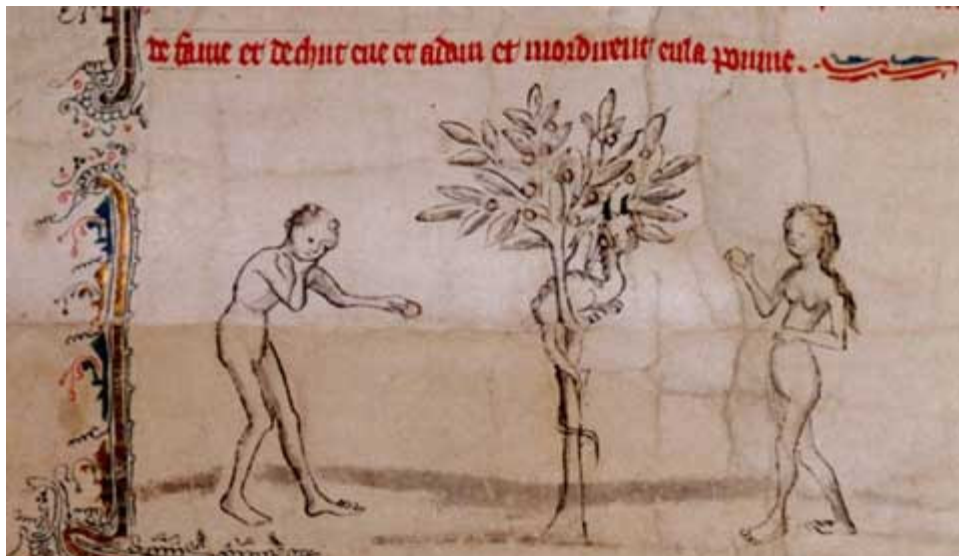 de fame et dechut eue et adam et mordirent en la pomme.